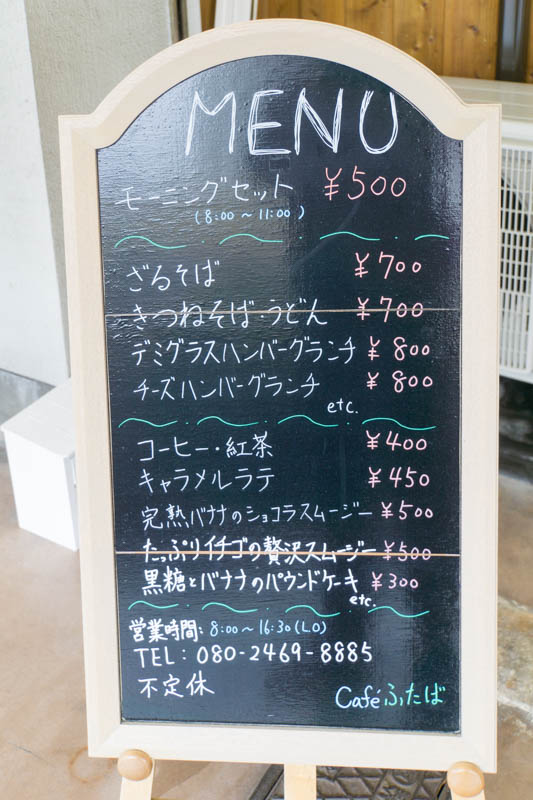 MENU
モーニングセット ¥500
(8:00~11:00)
ざるそば ¥700
きつねそば・うどん ¥700
デミグラスハンバーグランチ ¥800
チーズハンバーグランチ ¥800
etc.
コーヒー・紅茶 ¥400
キャラメルラテ ¥450
完熟バナナのショコラスムージー ¥500
たっぷりイチゴの贅沢スムージー ¥500
黒糖とバナナのパウンドケーキ ¥300
etc.
営業時間: 8:00~16:30(LO)
TEL: 080-2469-8885
不定休
Café ふたば